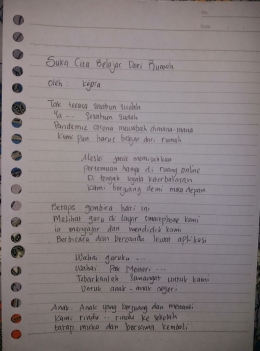 Suka Cita Belajar Dari Rumah
Oleh: Kejora
Tak terasa setahun sudah
Ya ... Setahun sudah
Pandemic corona mewabah dimana mana
Kami pun harus belajar dari rumah
Meski jauh
Pertemuan hanya di ruang online
Di tengah segala keterbatasan
Kami berjuang demi masa depan
Betapa gembira hari ini
Melihat guru di layar smartphone kami
Ia mengajar dan mendidik kami
Berbicara dan bercanda lewat aplikasi
Wahai guruku ...
Wahai Pak Menteri ...
Tebarkanlah Semangat untuk kami
Untuk anak-anak negeri
Anak-Anak yang berjuang dan menanti
Kami rindu .. rindu ke sekolah
tatap muka dan bersiang kembali